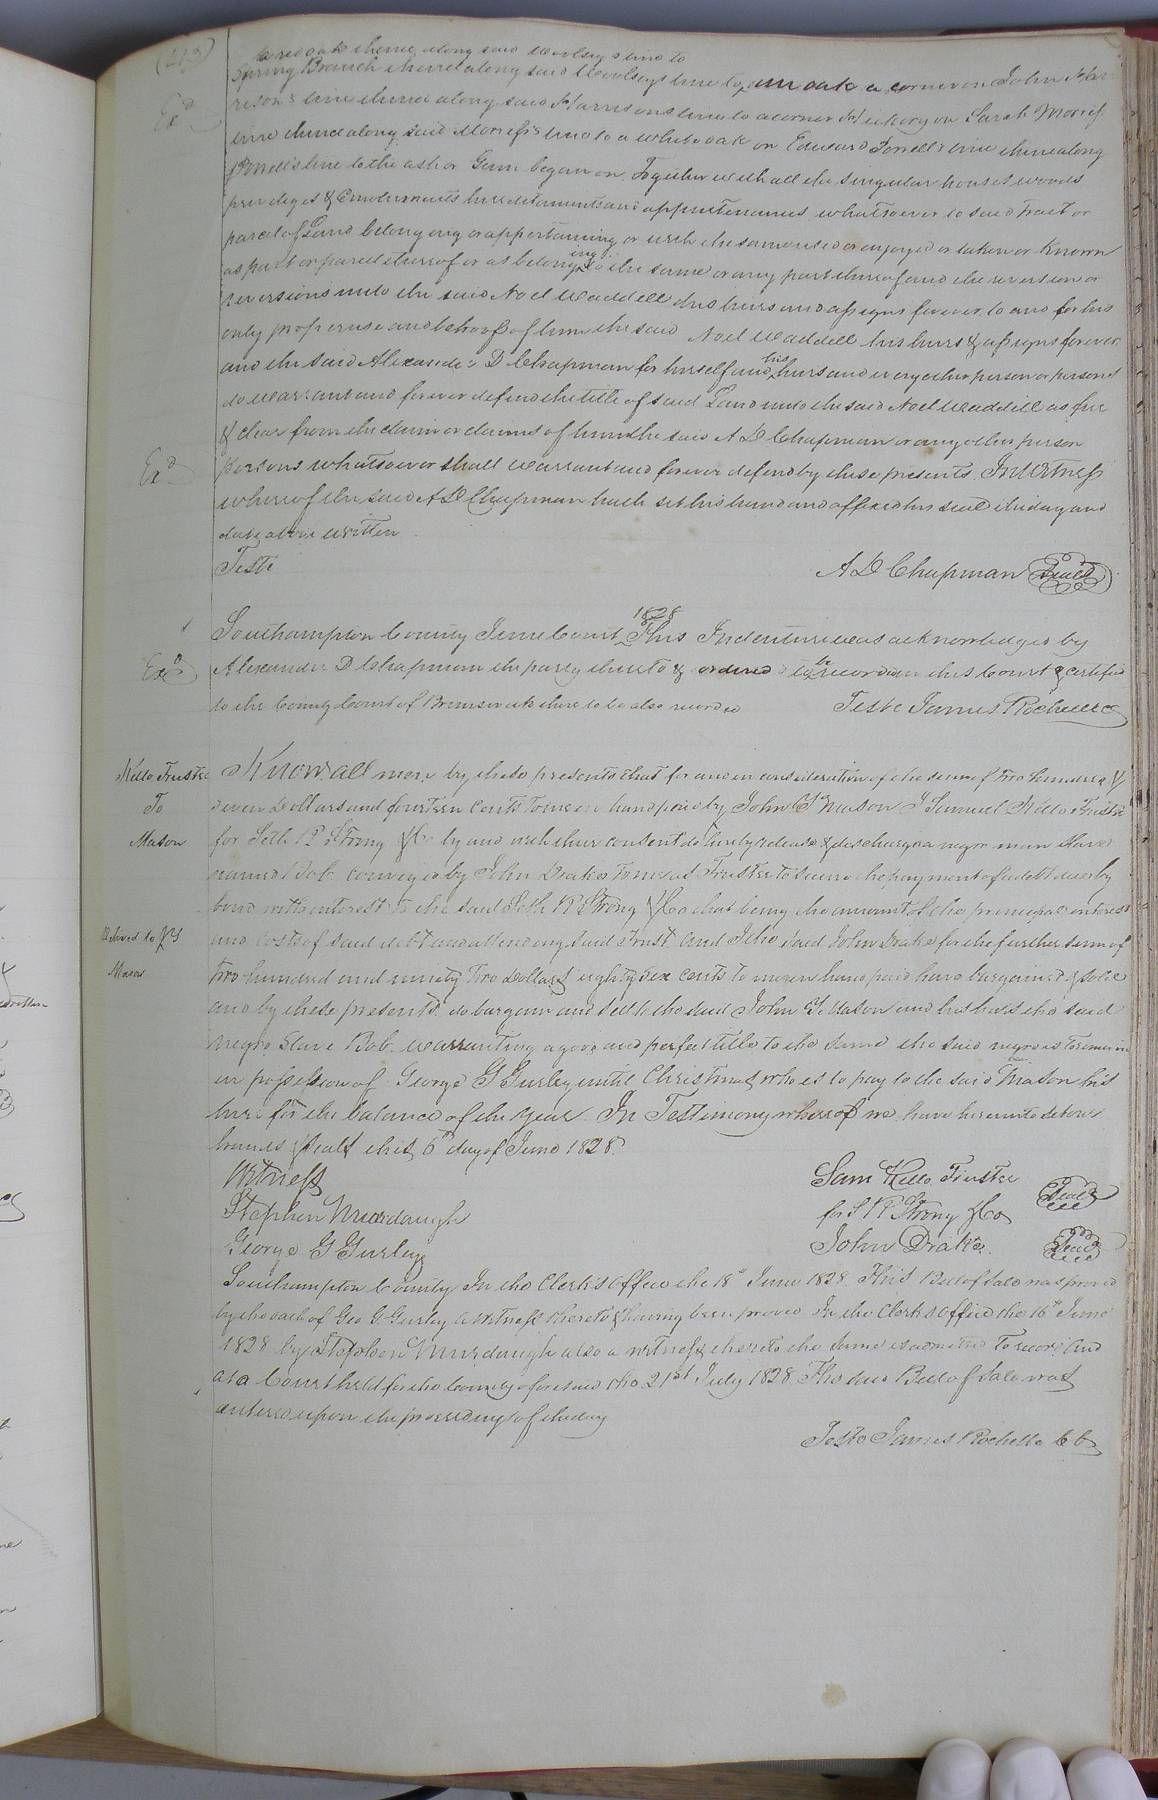 (213)
a red oak thence along said Woolseys line to
Spring Branch thence along said Woolseys line to an oak a corner on John Har
risons line thence along said Harrisons line to a corner Hickory on Sarah
line thence along said line to a white oak on Edward line thence along
line to the ash or Gum began on Together with all the singular houses woods
priviledges & Emoluments heredetaments and appurtenances whatsoever to said Tract or
parcel of Land belonging or appertaining or with the same used or enjoyed or taken or Known
as part or parcel thereof or as belonging to the same or any part thereof and the reversion or
reversions unto the said Noel Waddell his heirs and assigns forever to and for his
only proper use and behoof of him the said Noel Waddell his heirs & assigns forever
and the said Alexander D Chapman for himself and his heirs and every other person or persons
do warrant and forever defend the title of said Land unto the said Noel Waddill as free
& clear from the claim or claims of him the said A D Chapman or any other person
persons whatsoever shall warrant and forever defend by these presents. In Witness
whereof the said A D Chapman hath set his hand and affixed his seal the day and
date above written
Teste
A D Chapman Seal
Southampton County June Court 1828 This Indenture was acknowledged by
Alexander D Chapman the party thereto & ordered to be recorded in this Court & certified
to the County Court of Brunswick there to be also recorded
Teste James Rochelle
Exd
Exd
Exd
Kello Trustee
To
Mason
Delived to JY
Mason
Know all men by these presents that for and in consideration of the sum of two hundred &
seven Dollars and fourteen cents to me in hand paid by John Y Mason I Samuel Kello Trustee
for Seth P Strong & Co by and with their consent do hereby release & discharge a negro man slave
named Bob conveyed by John Drake to me as Trustee to secure the payment of a debt due by
bond with interest to the said Seth P Strong & Co that being the amount of the principal interest
and costs of said debt and attending said Trust. and I the said John Drake for the further sum of
two hundred and ninety two Dollars eighty six cents to me in hand paid have bargained & sold
and by these presents do bargain and sell to the said John Y Mason and his heirs the said
negro Slave Bob. warranting a good and perfect title to the same the said negro is to remain
in possession of George G Gurley until Christmas who is to pay to the said Mason his
hire for the balance of the year. In Testimony whereof we have hereunto set our
hands & seals this 6th day of June 1828.
Witness
Stephen Murdaugh
George G Gurley
Sam Kello Trustee
for S P Strong & Co
Seal
John Drake
Seal
Southampton County In the Clerk's Office the 18th June 1828 This Bill of Sale was proved
by the oath of Geo G Gurley a witness thereto & having been proved In the Clerks Office the 16th June
1828 by Stephen Murdaugh also a witness thereto the same is admitted to record And
at a Court held for the County aforesaid the 21st July 1828 The said Bill of Sale was
entered upon the proceedings of the day
Teste James Rochelle